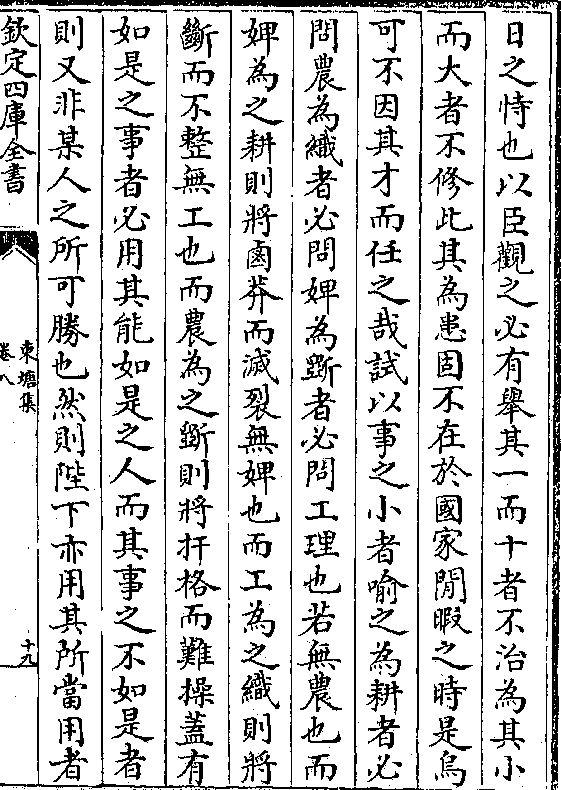 日之恃也以臣觀之必有舉其一而十者不治為其小
而大者不修此其為患固不在於國家閒暇之時是烏
可不因其才而任之哉試以事之小者喻之為耕者必
問農為織者必問婢為斲者必問工理也若無農也而
婢為之耕則將鹵莽而滅裂無婢也而工為之織則將
斷而不整無工也而農為之斲則將扞格而難操蓋有
如是之事者必用其能如是之人而其事之不如是者
則又非某人之所可勝也然則陛下亦用其所當用者
欽定四庫全書
東塘集
卷八
十九